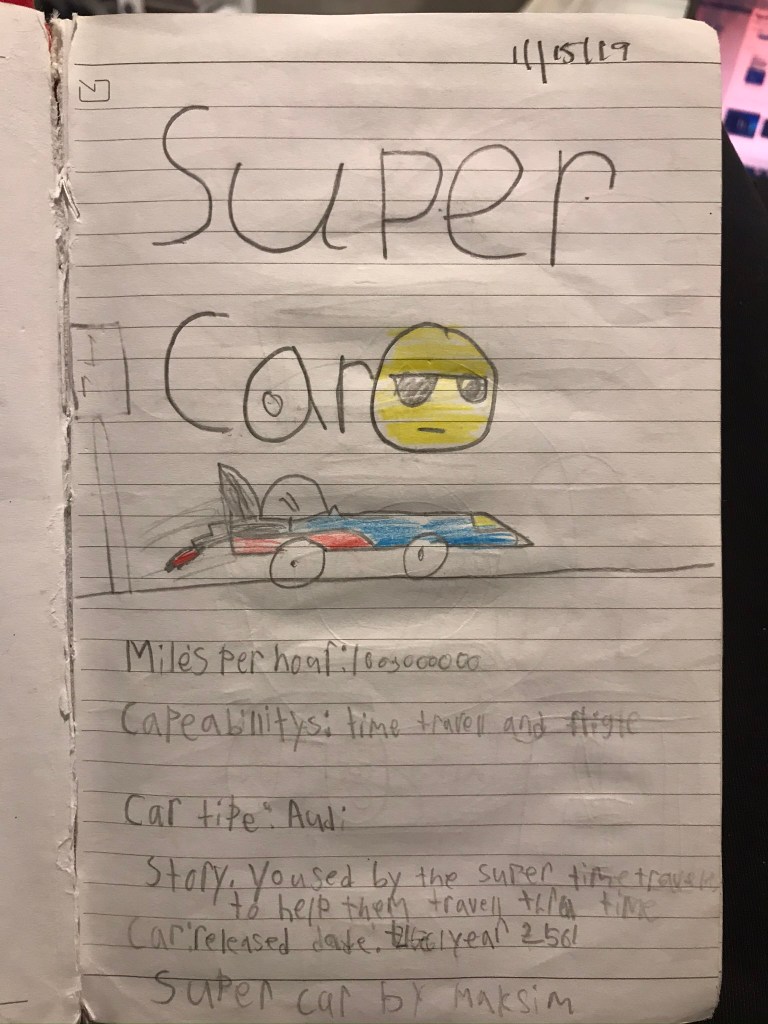 1/15/19
Super
Car
Miles per hour:1000000000
Capeabilitys: time travell and fligte
Car tipe: Audi
Story. Yoused by the super time travelers
to help them travell thro time
Car released date: year 2561
Super car by Maksim